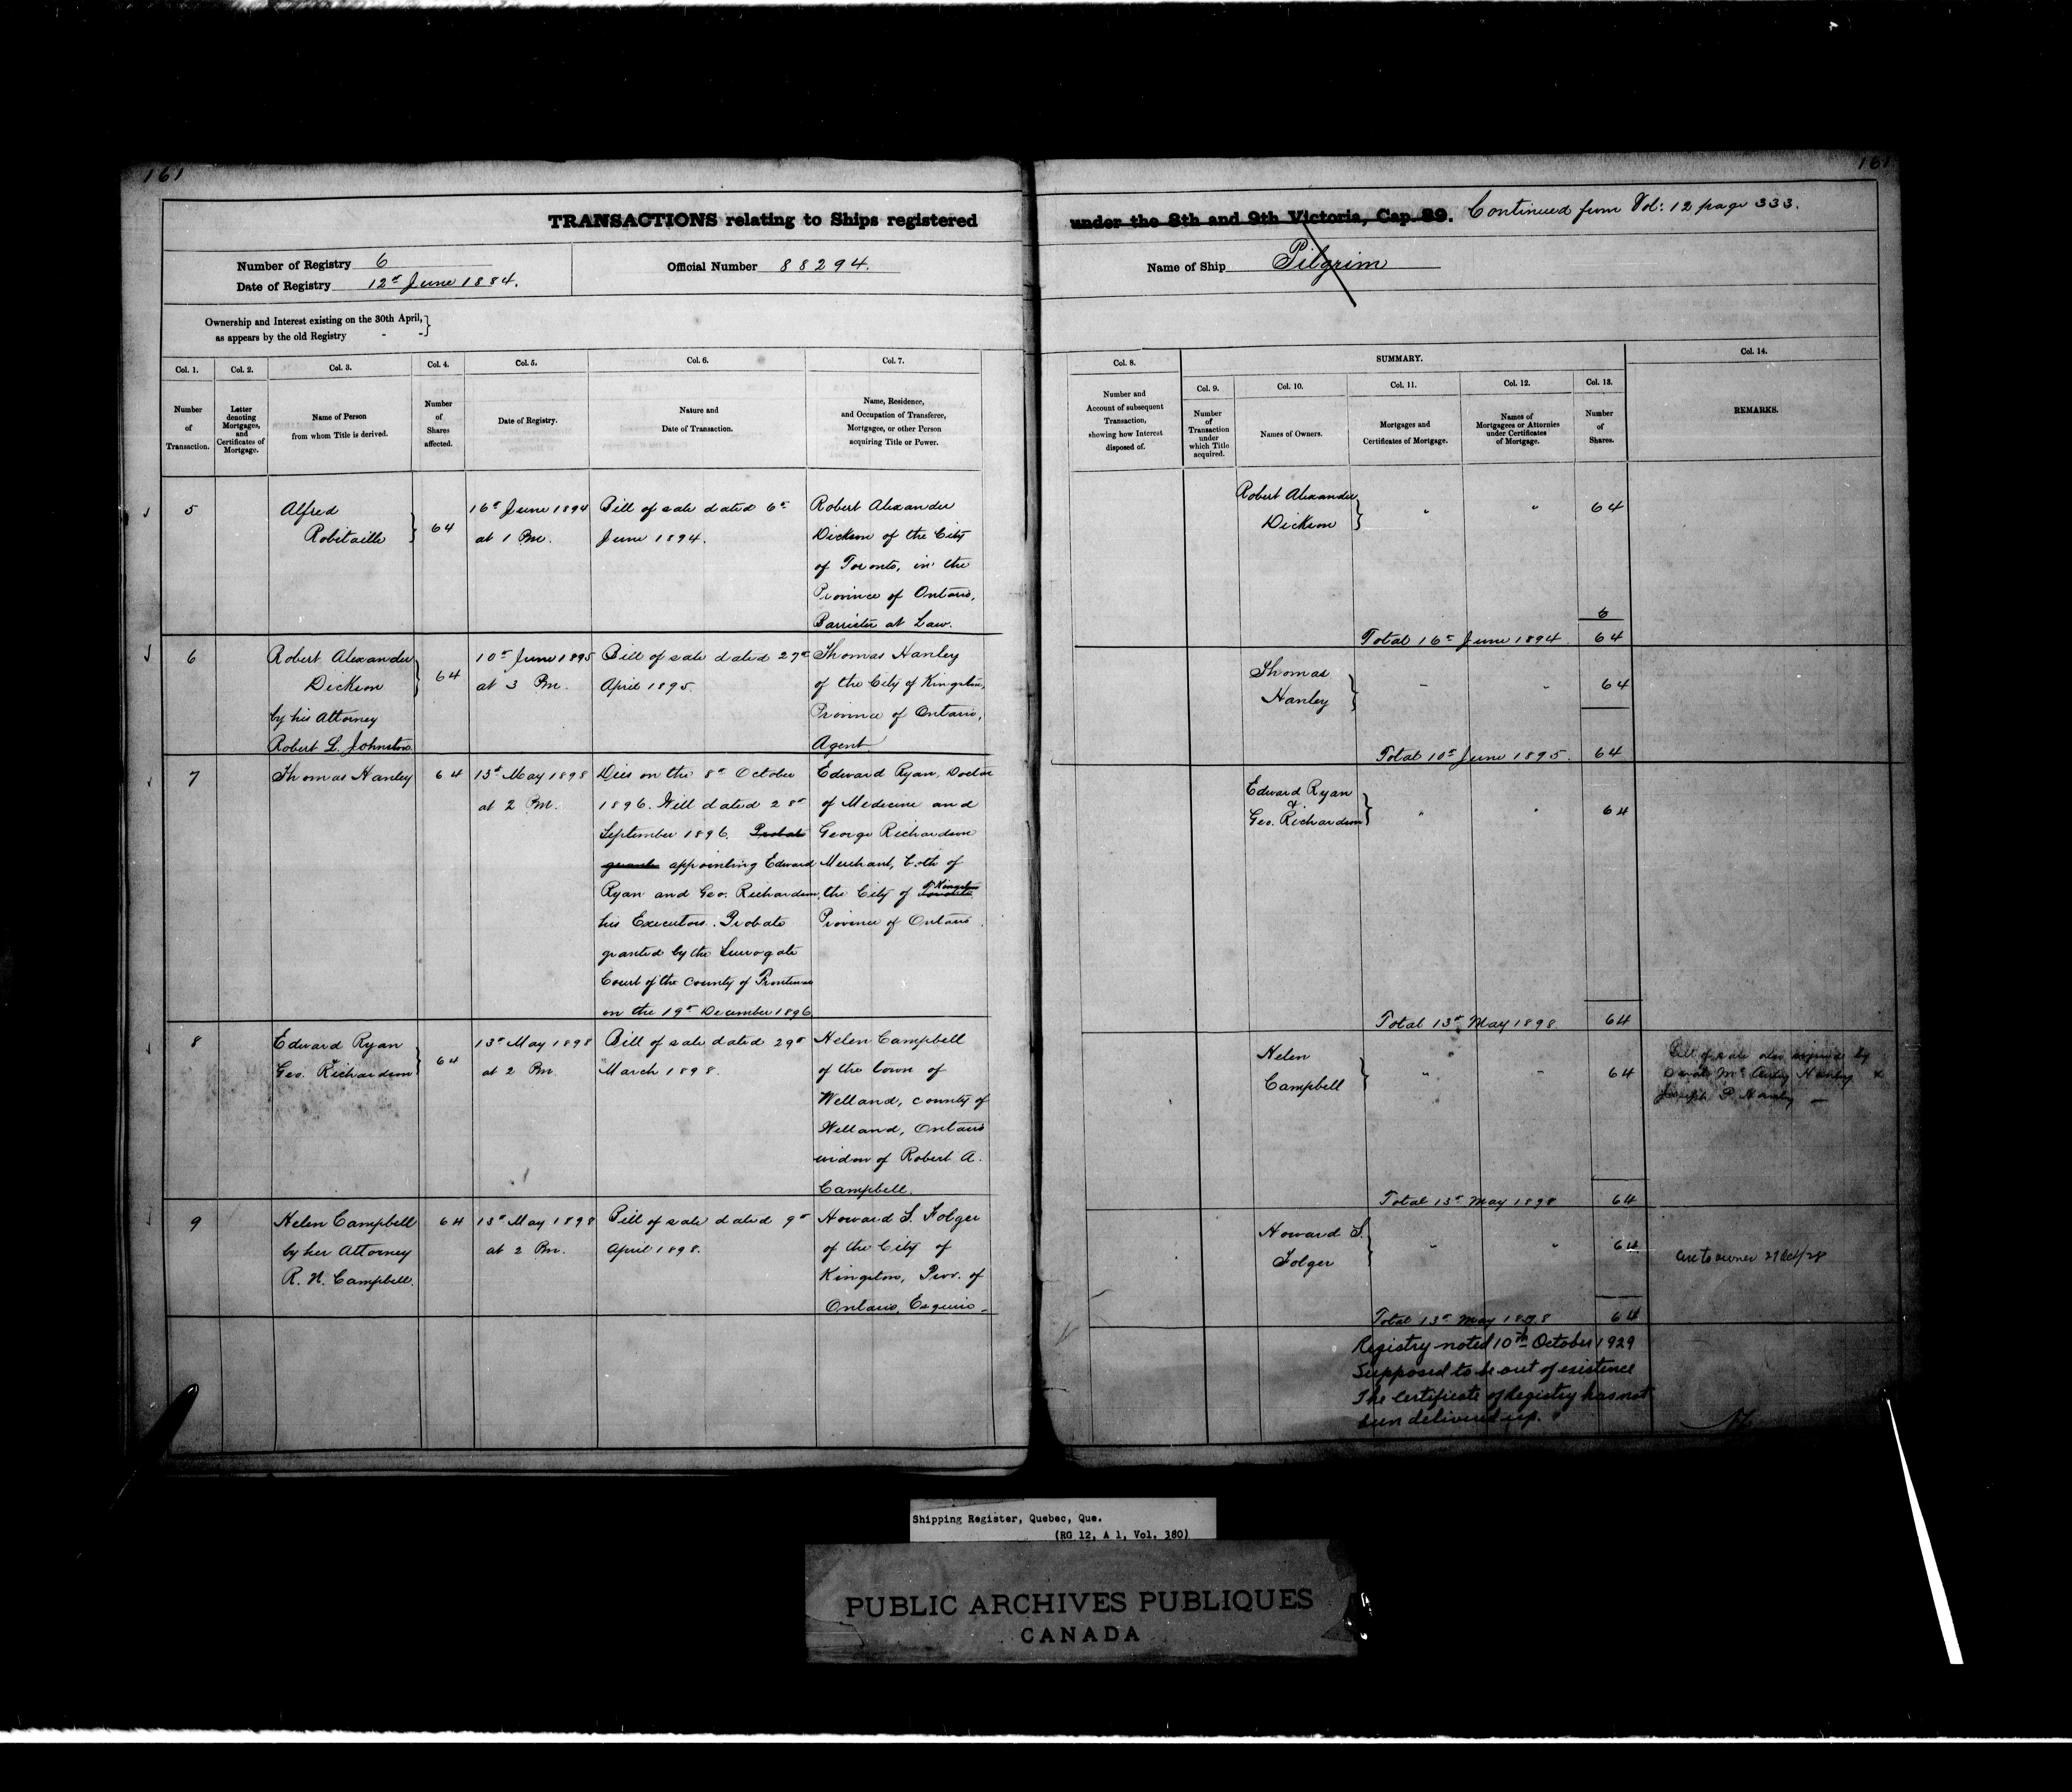 161
161
TRANSACTIONS relating to Ships registered under the 8th and 9th Victoria, Cap. 89. Continued from Vol: 12 page 333.
Number of Registry 6
Date of Registry 12th June 1884.
Official Number 88294.
Name of Ship Pilgrim
Ownership and Interest existing on the 30th April,
as appears by the old Registry - -
Col. 1.
Number
of
Transaction.
Col. 2.
Letter
denoting
Mortgages,
and
Certificates of
Mortgage.
Col. 3.
Name of Person
from whom Title is derived.
Col. 4.
Number
of
Shares
affected.
Col. 5.
Date of Registry.
Col. 6.
Nature and
Date of Transaction.
Col. 7.
Name, Residence,
and Occupation of Transferee,
Mortgagee, or other Person
acquiring Title or Power.
Col. 8.
Number and
Account of subsequent
Transaction,
showing how Interest
disposed of.
SUMMARY.
Col. 9.
Number
of
Transaction
under
which Title
acquired.
Col. 10.
Names of Owners.
Col. 11.
Mortgages and
Certificates of Mortgage.
Col. 12.
Names of
Mortgagees or Attornies
under Certificates
of Mortgage.
Col. 13.
Number
of
Shares.
Col. 14.
REMARKS.
5
Alfred
Robitaille
64
16th June 1894
at 1 Pm.
Bill of sale dated 6th
June 1894.
Robert Alexander
Dickson of the City
of Toronto, in the
Province of Ontario,
Barrister at Law.
Robert Alexander
Dickson
" "
64
6
Total 16th June 1894 64
6
Robert Alexander
Dickson
by his Attorney
Robert L. Johnston
64
10th June 1895
at 3 Pm.
Bill of sale dated 27th
April 1895.
Thomas Hanley
of the City of Kingston,
Province of Ontario,
Agent
Thomas
Hanley
" "
64
Total 10th June 1895. 64
7
Thomas Hanley
64
13th May 1898
at 2 Pm.
Dies on the 8th October
1896. Will dated 28th
September 1896. Probate
granted appointing Edward
Ryan and Geo. Richardson,
his Executors. Probate
granted by the Surrogate
Court of the County of Frontenac
on the 19th December 1896
Edward Ryan, Doctor
of Medecine and
George Richardson
Merchant, both of
the City of Kingston
Province of Ontario.
Edward Ryan
&
Geo. Richardson
" "
64
Total 13th May 1898 64
8
Edward Ryan
&
Geo. Richardson
64
13th May 1898
at 2 Pm.
Bill of sale dated 29th
March 1898.
Helen Campbell
of the town of
Welland, county of
Welland, Ontario
widow of Robert A.
Campbell.
Helen
Campbell
" "
64
Bill of sale also signed by
Mc Hanley &
Joseph P. Hanley
Total 13th May 1898 64
9
Helen Campbell
by her Attorney
R. N. Campbell.
64
13th May 1898
at 2 Pm.
Bill of sale dated 9th
April 1898.
Howard S. Folger
of the City of
Kingston, Prov. of
Ontario, Esquire.
Howard S.
Folger
" "
64
to owner 29 Oct/28
Total 13th May 1898 64
Registry noted 10th October 1929
Supposed to be out of existence
The Certificate of Registry has not
been delivered up.
Shipping Register, Quebec, Que.
(RG 12, A 1, Vol. 380)
PUBLIC ARCHIVES PUBLIQUES
CANADA